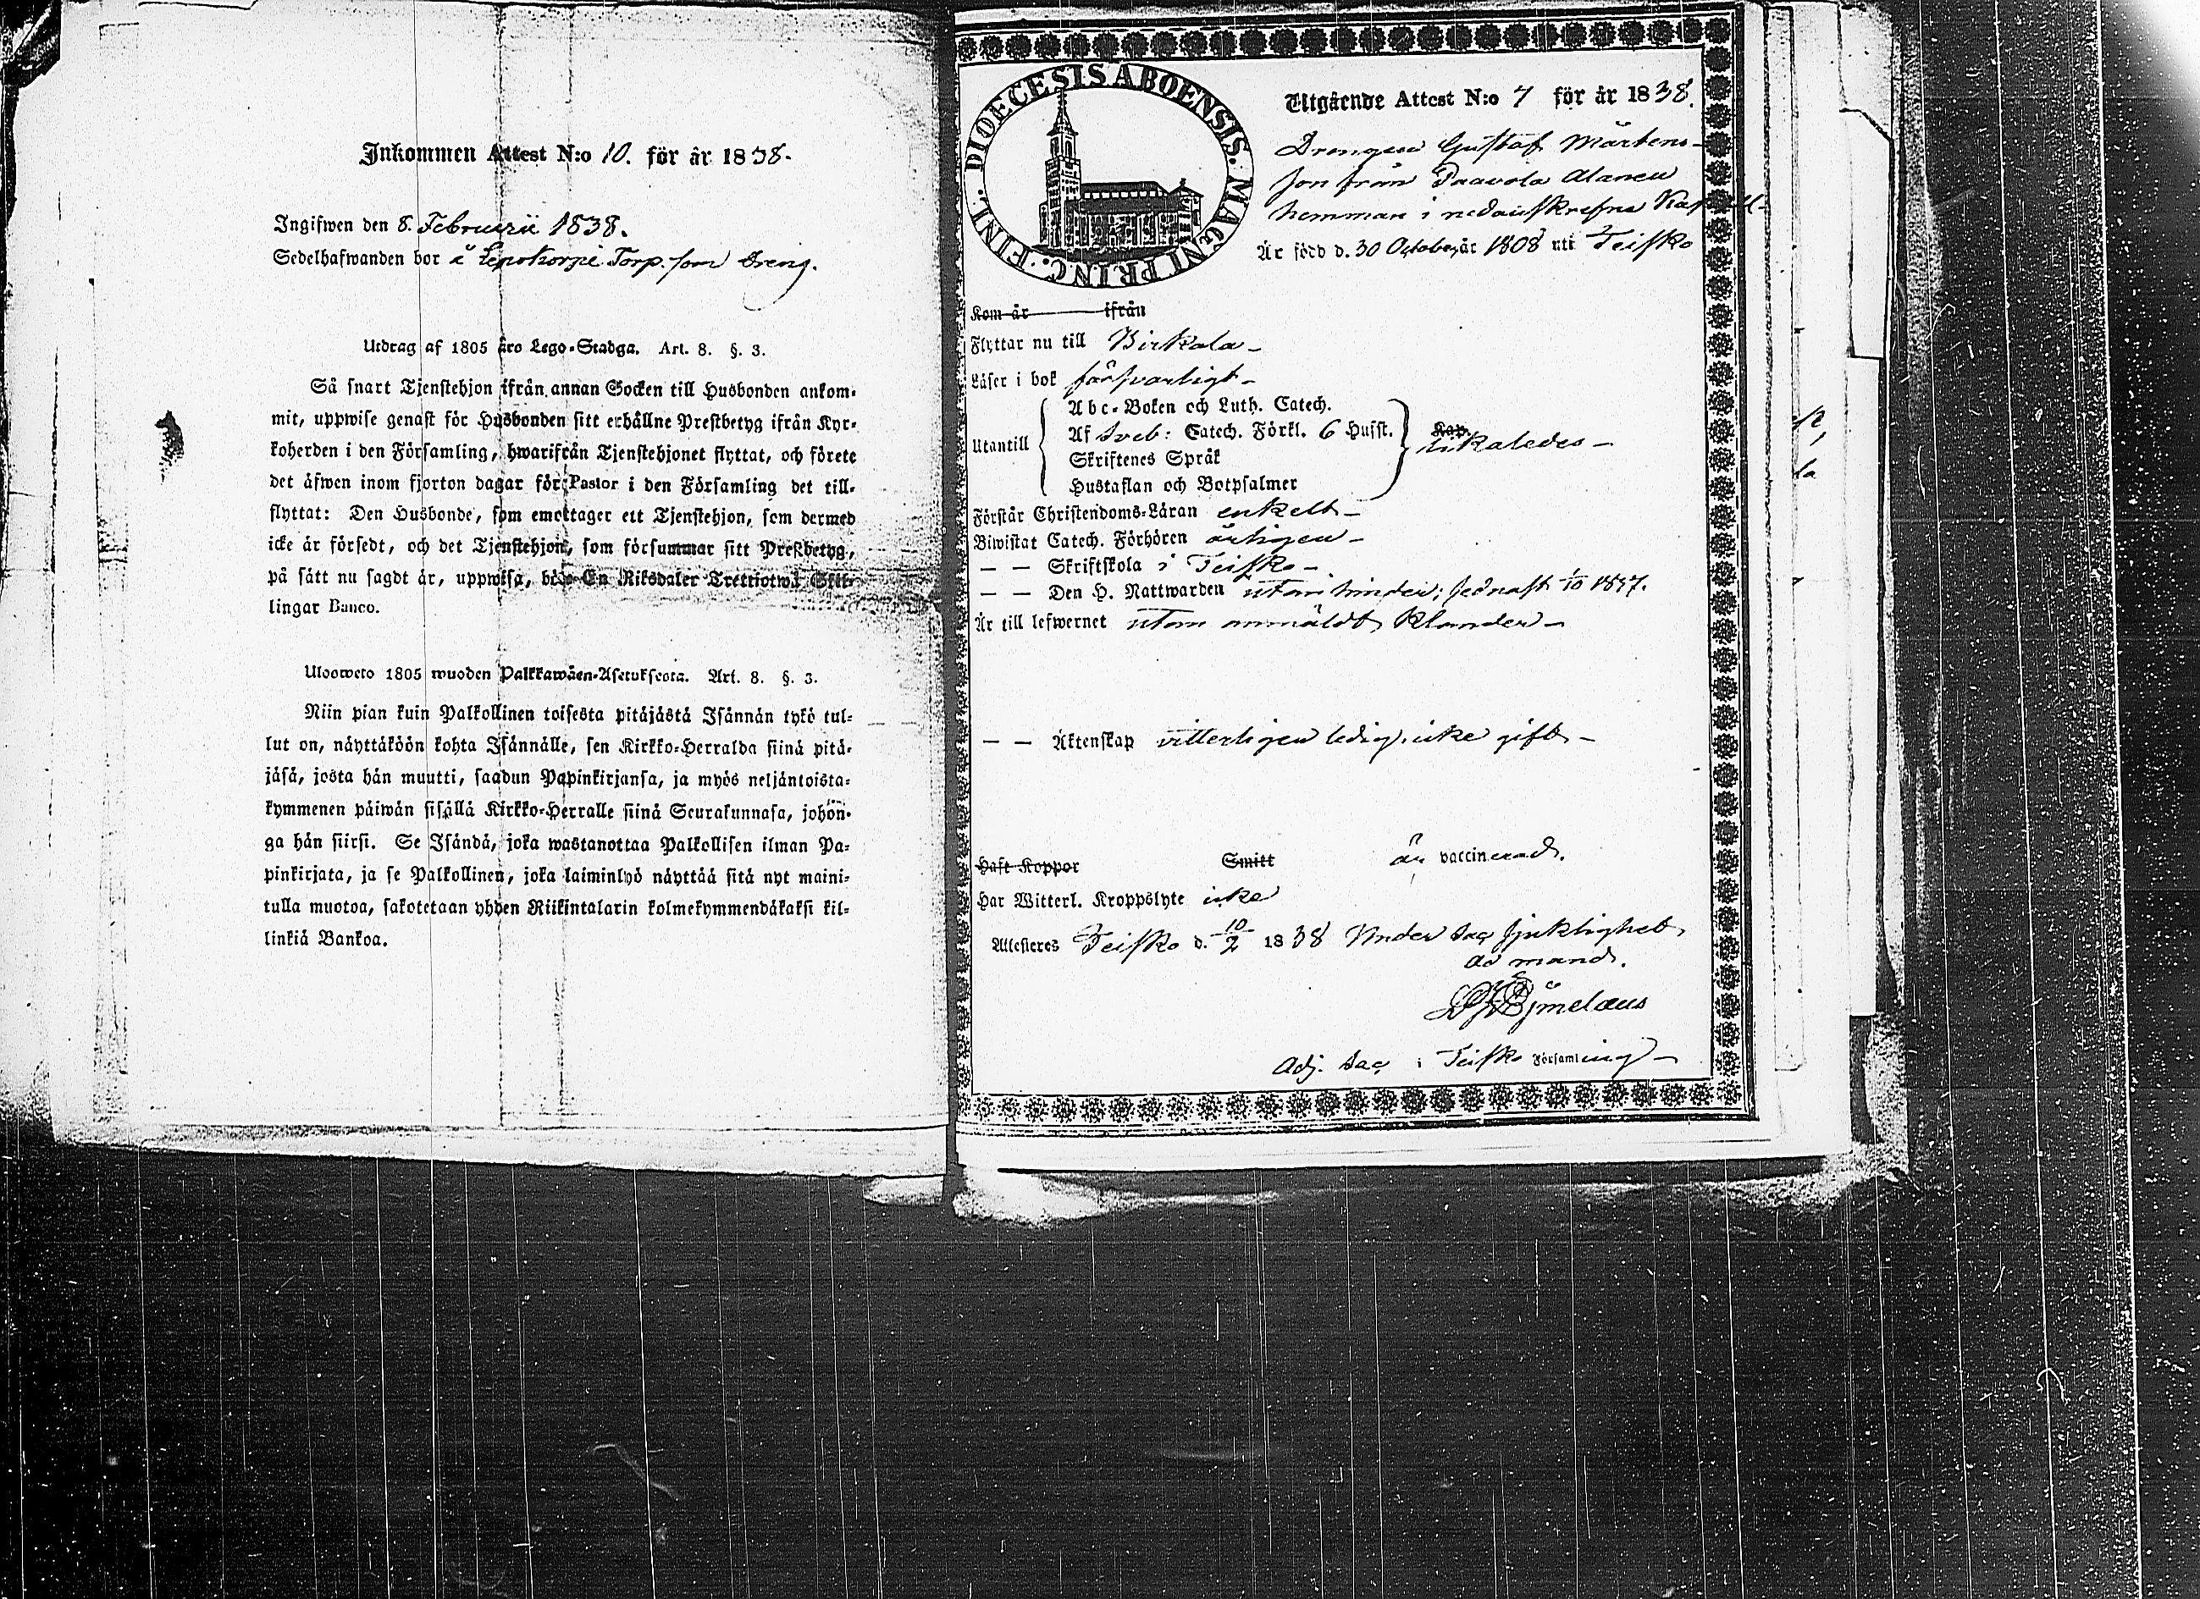 Inkommen Attest N:o 10. för år 1838.
Ingifwen den 8. Februarii 1838.
Sedelhafwanden bor å Lepokorpi Torp. som Dreng.
Utdrag af 1805 års Lego-Stadga. Art. 8. §. 3.
Så snart Tjenstehjon ifrån annan Socken till Husbonden ankom-
mit, uppwise genast för Husbonden sitt erhållne Prestbetyg ifrån Kyr-
koherden i den Församling, hwarifrån Tjenstehjonet flyttat, och förete
det äfwen inom fjorton dagar för Pastor i den Församling det till-
flyttat: Den Husbonde, som emottager ett Tjenstehjon, som dermed
icke är försedt, och det Tjenstehjon, som försummar sitt Prestbetyg,
på sätt nu sagdt är, uppwisa, böte En Riksdaler Trettiotwå Skil-
lingar Banco.
Uloosweto 1805 wuoden Palkkawäen-Asetuksesta. Art. 8. §. 3.
Niin pian kuin Palkollinen toisesta pitäjästä Isännän tykö tul-
lut on, näyttäköön kohta Isännälle, sen Kirkko-Herralda siinä pitä-
jäsä, josta hän muutti, saadun Papinkirjansa, ja myös neljäntoista-
kymmenen päiwän sisällä Kirkko-Herralle siinä Seurakunnasa, johon-
ga hän siirsi. Se Isändä, joka wastanottaa Palkollisen ilman Pa-
pinkirjata, ja se Palkollinen, joka laiminlyö näyttää sitä nyt maini-
tulla muotoa, sakotetaan yhden Riikintalarin kolmekymmendäkaksi kil-
linkiä Bankoa.
DIOECESIS ABOENSIS. MAGNI PRINC. FINL.
Utgående Attest N:o 7 för år 1838.
Drengen Gustaf Mårtens-
son från Paavola Alanen
hemman i nedanskrefne Kapell-
Är född d. 30 October år 1808 uti Teisko
Kom år ifrån
Flyttar nu till Birkala
Läser i bok försvarligt
Abc-Boken och Luth. Catech.
Utantill Af Sveb: Catech. Förkl. 6 Hufst. Kap. likaledes
Skriftenes Språk
Hustaflan och Botpsalmer
Förstår Christendoms-Läran enkelt
Biwistat Catech. Förhören årligen
— — Skriftskola i Teisko
— — Den H. Nattwarden utan hinder; sednast 1/10 1837.
Är till lefwernet utan anmäldt klander
— — Äktenskap vitterligen ledig, icke gift
Haft Koppor Smitt är vaccinerad.
Har Witterl. Kroppslyte icke
Attesteras Teisko d. 10/2 1838 Under Sac. sjuklighet
ad mand.
Adj. Sac. i Teisko Församling